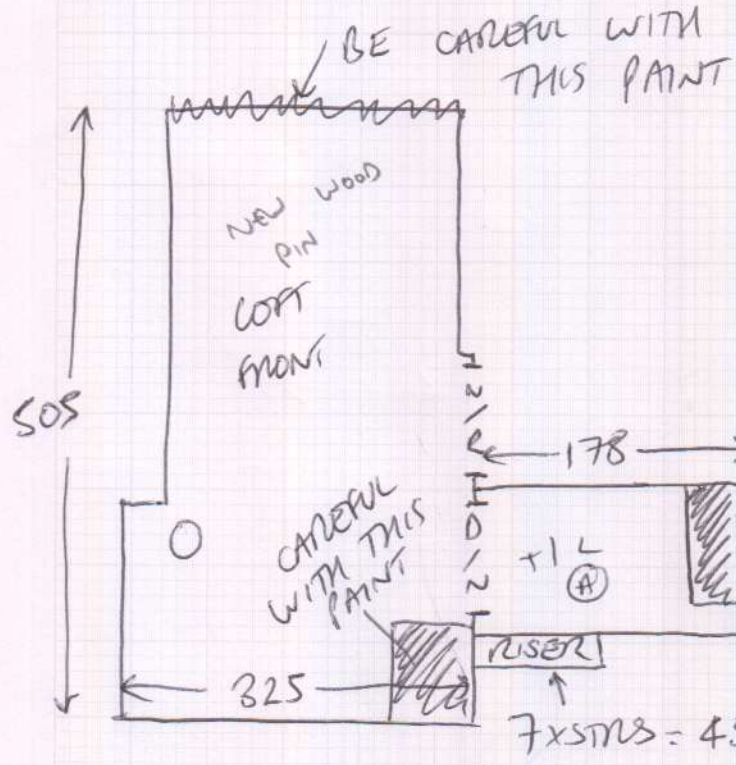 BE CAREFUL WITH
THIS PAINT
NEW WOOD
PIN
LOFT
FRONT
505
178
CAREFUL
WITH THIS
PAINT
+1 L
A
RISER
325